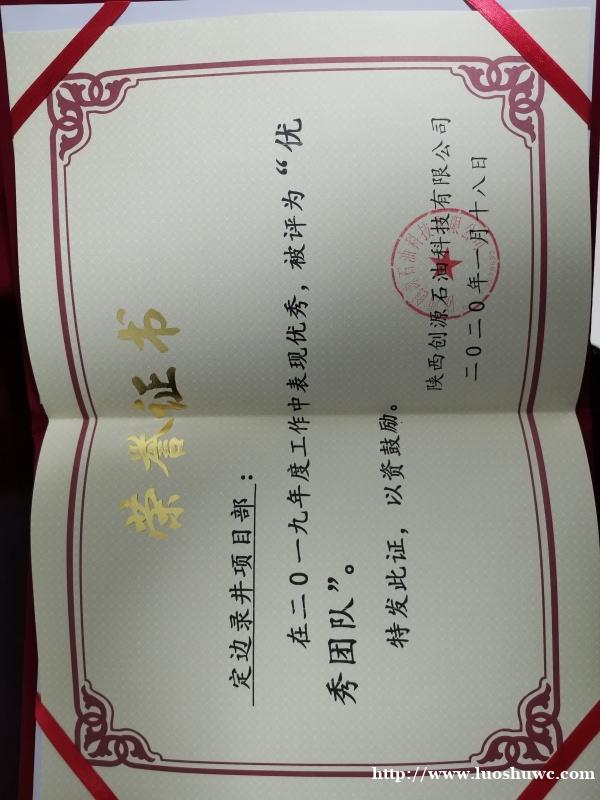 荣誉证书
定边录井项目部：
在二0一九年度工作中表现优秀，被评为“优
秀团队”。
特发此证，以资鼓励。
陕西创源石油科技有限公司
二0二0年一月十八日
http://www.luoshuwc.com